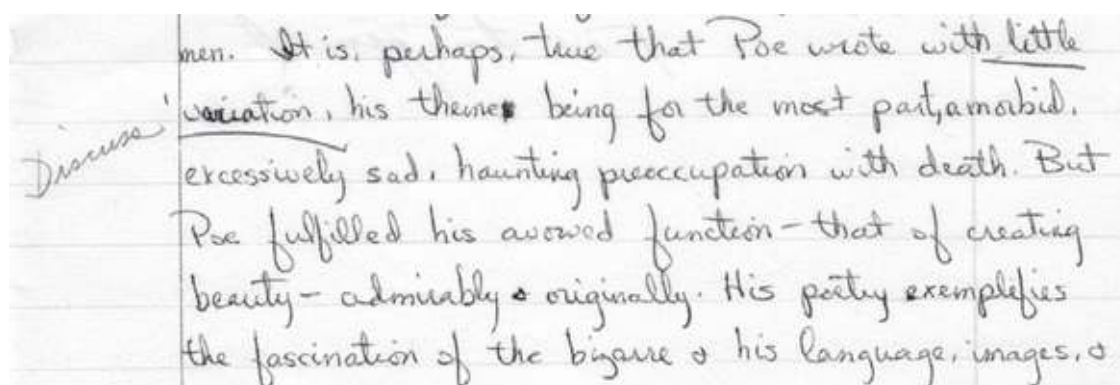 men. It is, perhaps, true that Poe wrote with little
Discuss
variation, his theme being for the most part, a morbid,
excessively sad, haunting preoccupation with death. But
Poe fulfilled his avowed function - that of creating
beauty - admirably & originally. His poetry exemplifies
the fascination of the bizarre & his language, images, &